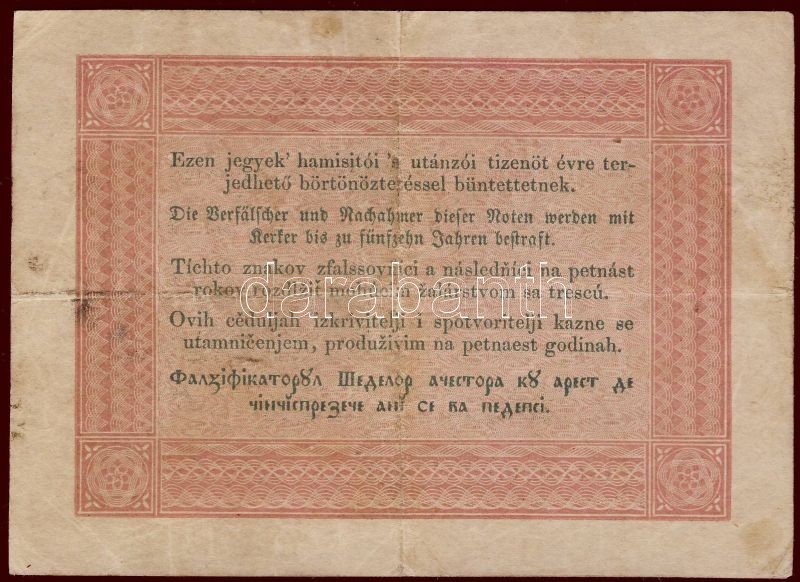 Ezen jegyek' hamisitói 's utánzói tizenöt évre ter-
jedhető börtönöztetéssel büntettetnek.
Die Verfälscher und Nachahmer dieser Noten werden mit
Kerker bis zu fünfzehn Jahren bestraft.
Tíchto znakov zfalssovníci a následníci na petnást
rokov rozdlžiť mohúcim žalárstvom sa trescú.
darabanth
Ovih céduljah izkrivitelji i spotvoritelji kazne se
utamničenjem, produživim na petnaest godinah.
Фалзіфікаторꙋл Шеделор ачестора кꙋ арест де
чінчіспрезече ані се ва педепсі.